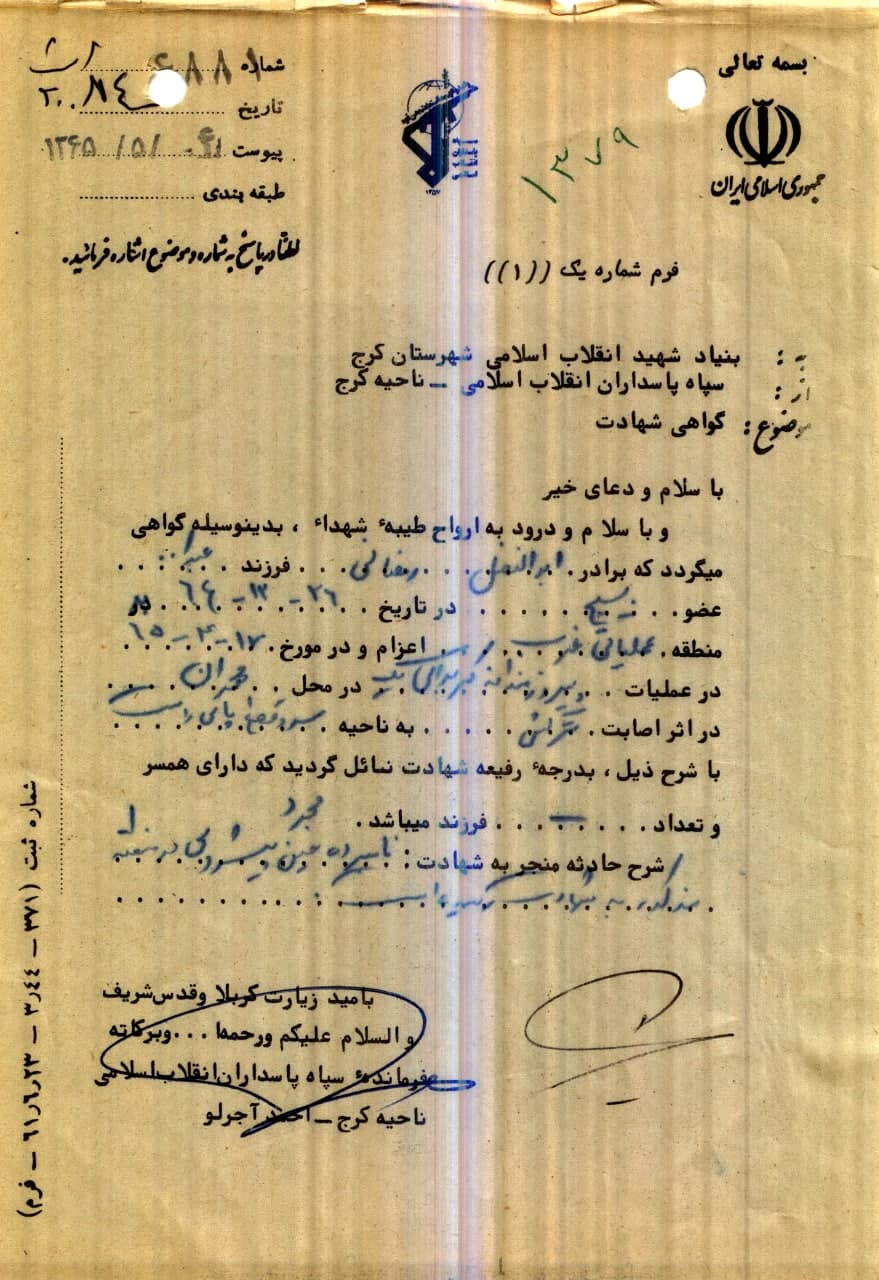 بسمه تعالی
جمهوری اسلامی ایران
شماره ۶۸۸۱
تاریخ
پیوست ۱۳۶۵/۵/
طبقه بندی
لطفاً در پاسخ به شماره و موضوع اشاره فرمائید.
۱۳۷۹
فرم شماره یک ((۱))
به : بنیاد شهید انقلاب اسلامی شهرستان کرج
از : سپاه پاسداران انقلاب اسلامی ــ ناحیه کرج
موضوع : گواهی شهادت
با سلام و دعای خیر
و با سلام و درود به ارواح طیبهٔ شهداء ، بدینوسیله گواهی
میگردد که برادر ابوالفضل رمضانی فرزند
عضو بسیج در تاریخ ۲۶-۱۲-۶۴ به
منطقه عملیاتی غرب اعزام و در مورخ ۱۷-۴-۶۵
در عملیات کربلای یک در محل مهران
در اثر اصابت ترکش به ناحیه سر و قطع پای راست
با شرح ذیل ، بدرجهٔ رفیعه شهادت نائل گردید که دارای همسر
مجرد
و تعداد ــ فرزند میباشد .
شرح حادثه منجر به شهادت : نامبرده حین پیشروی در منطقه
به شهادت رسیده است
بامید زیارت کربلا و قدس شریف
و السلام علیکم ورحمه‌ا... وبرکاته
فرماندهٔ سپاه پاسداران انقلاب اسلامی
ناحیه کرج ــ احمد آجرلو
شماره ثبت (۳۷۱ ــ ۳٫۴۴ ــ ۶۱٫۶٫۲۳ ــ فرم)